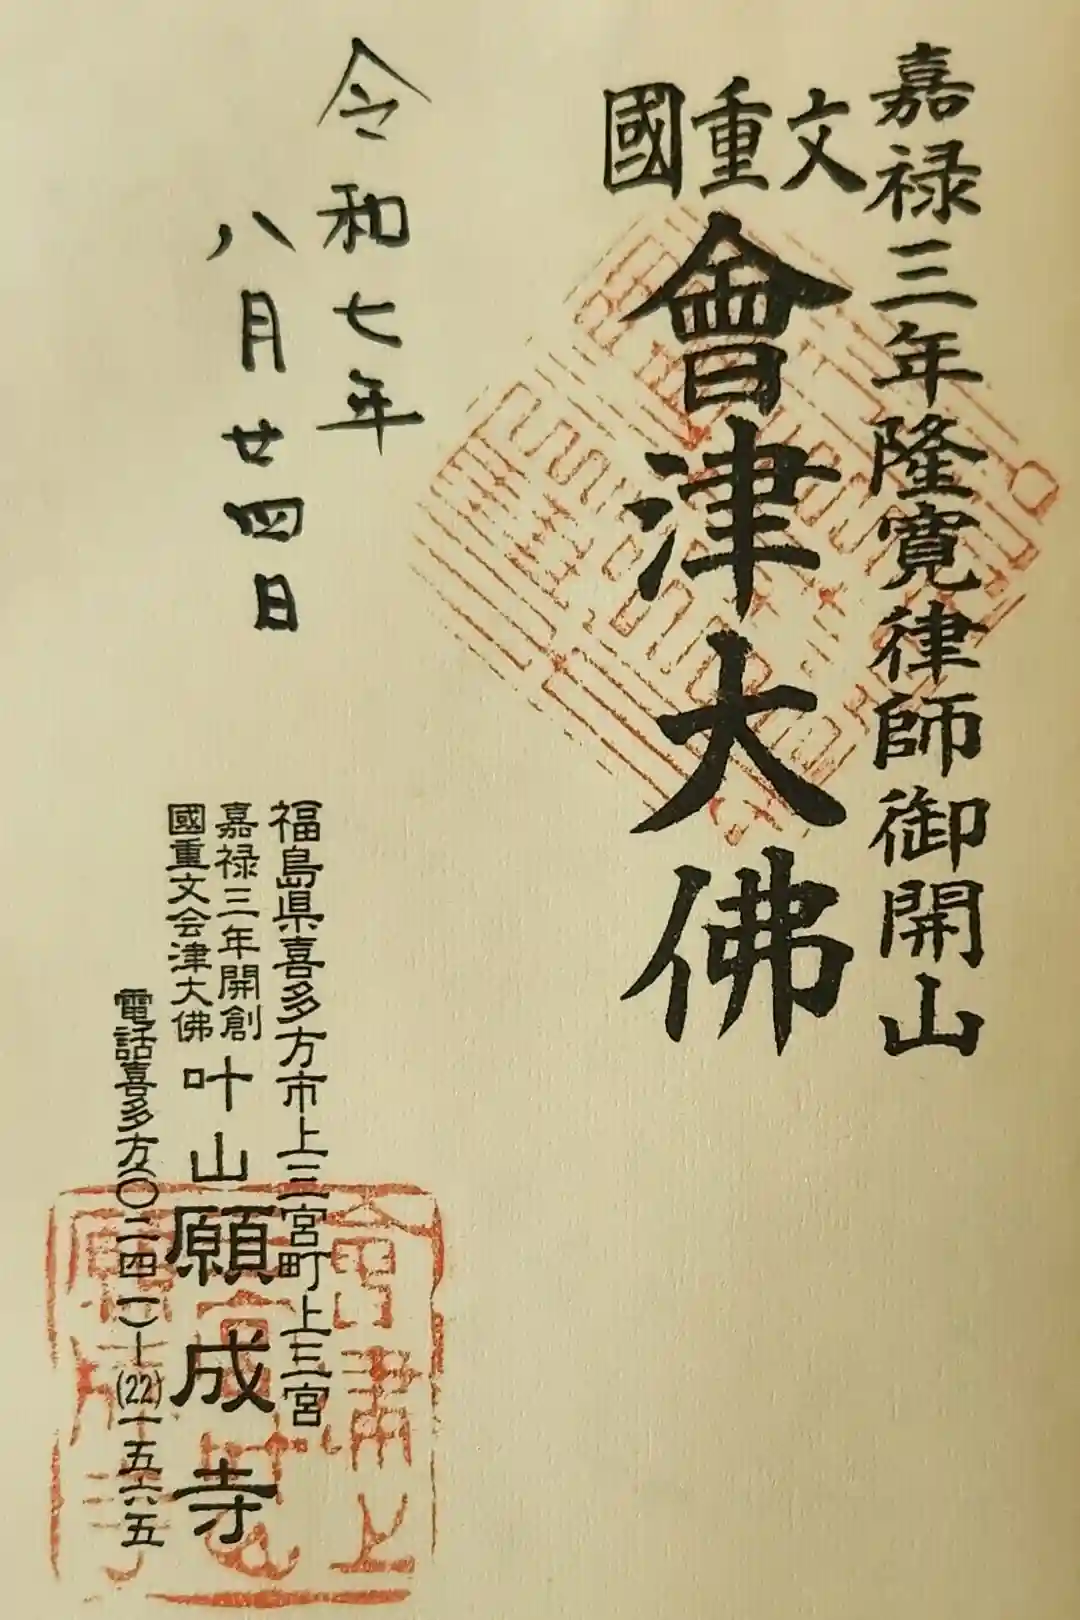 嘉禄三年隆寛律師御開山
文重國
會津大佛
令和七年
八月廿四日
福島県喜多方市上三宮町上三宮
嘉禄三年開創
國重文会津大佛
叶山願成寺
電話喜多方(〇二四一)-(22)-一五六五